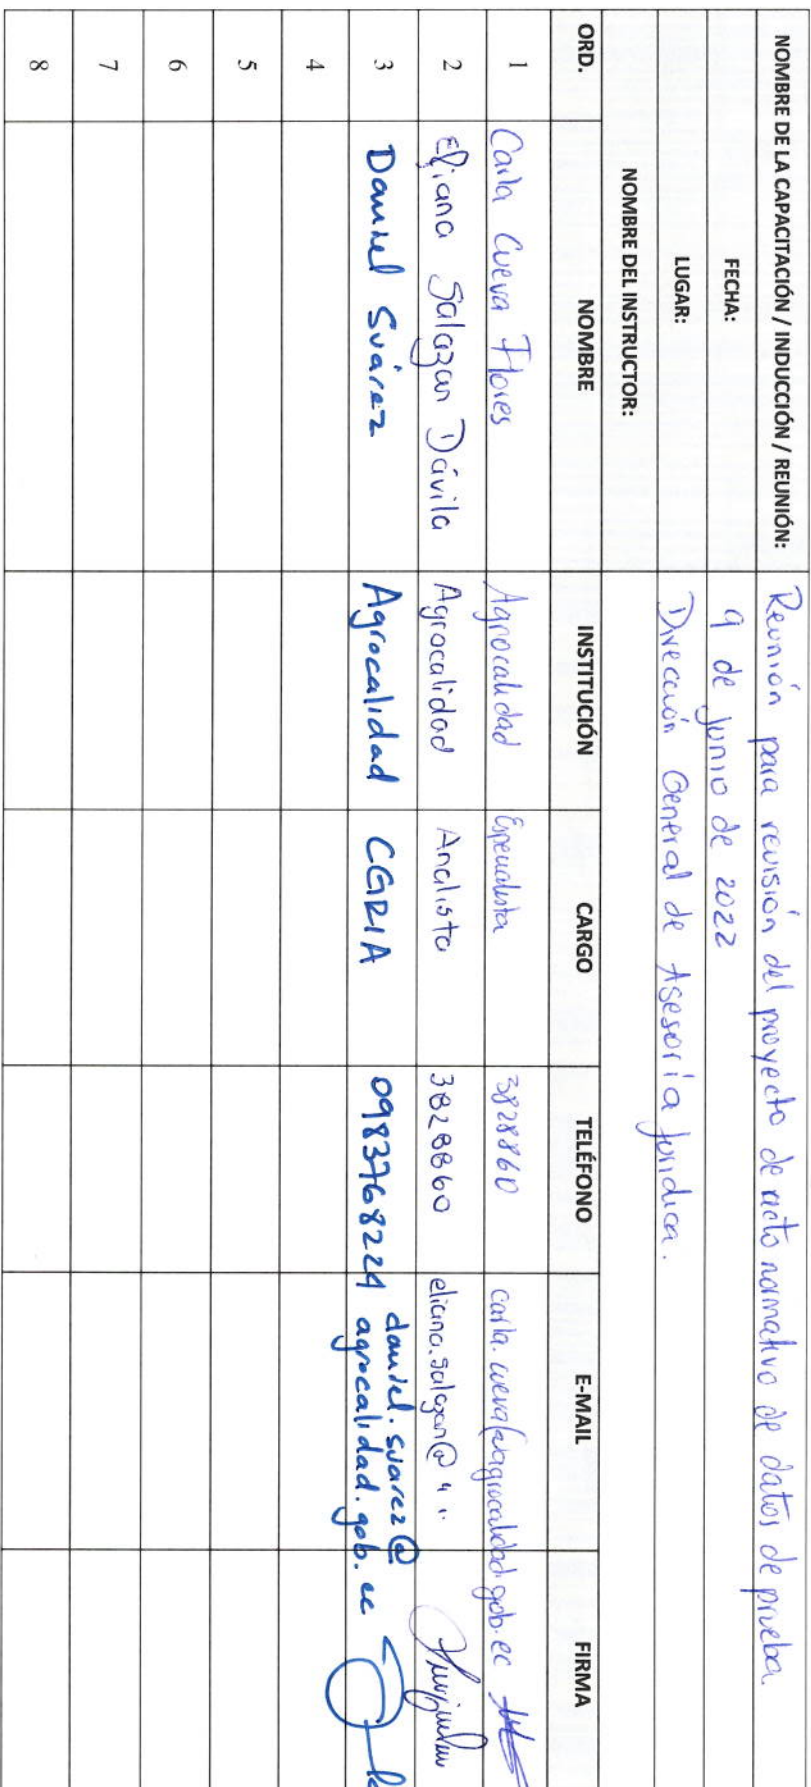 NOMBRE DE LA CAPACITACIÓN / INDUCCIÓN / REUNIÓN: Reunión para revisión del proyecto de acto normativo de datos de prueba.
FECHA: 9 de junio de 2022
LUGAR: Dirección General de Asesoría Jurídica.
NOMBRE DEL INSTRUCTOR:
ORD. NOMBRE INSTITUCIÓN CARGO TELÉFONO E-MAIL FIRMA
1 Carla Cueva Flores Agrocalidad Especialista 3828860 carla.cueva@agrocalidad.gob.ec
2 Eliana Salazar Dávila Agrocalidad Analista 3828860 eliana.salazar@ " "
3 Daniel Suárez Agrocalidad CGRIA 0983768224 daniel.suarez@
agrocalidad.gob.ec
4
5
6
7
8